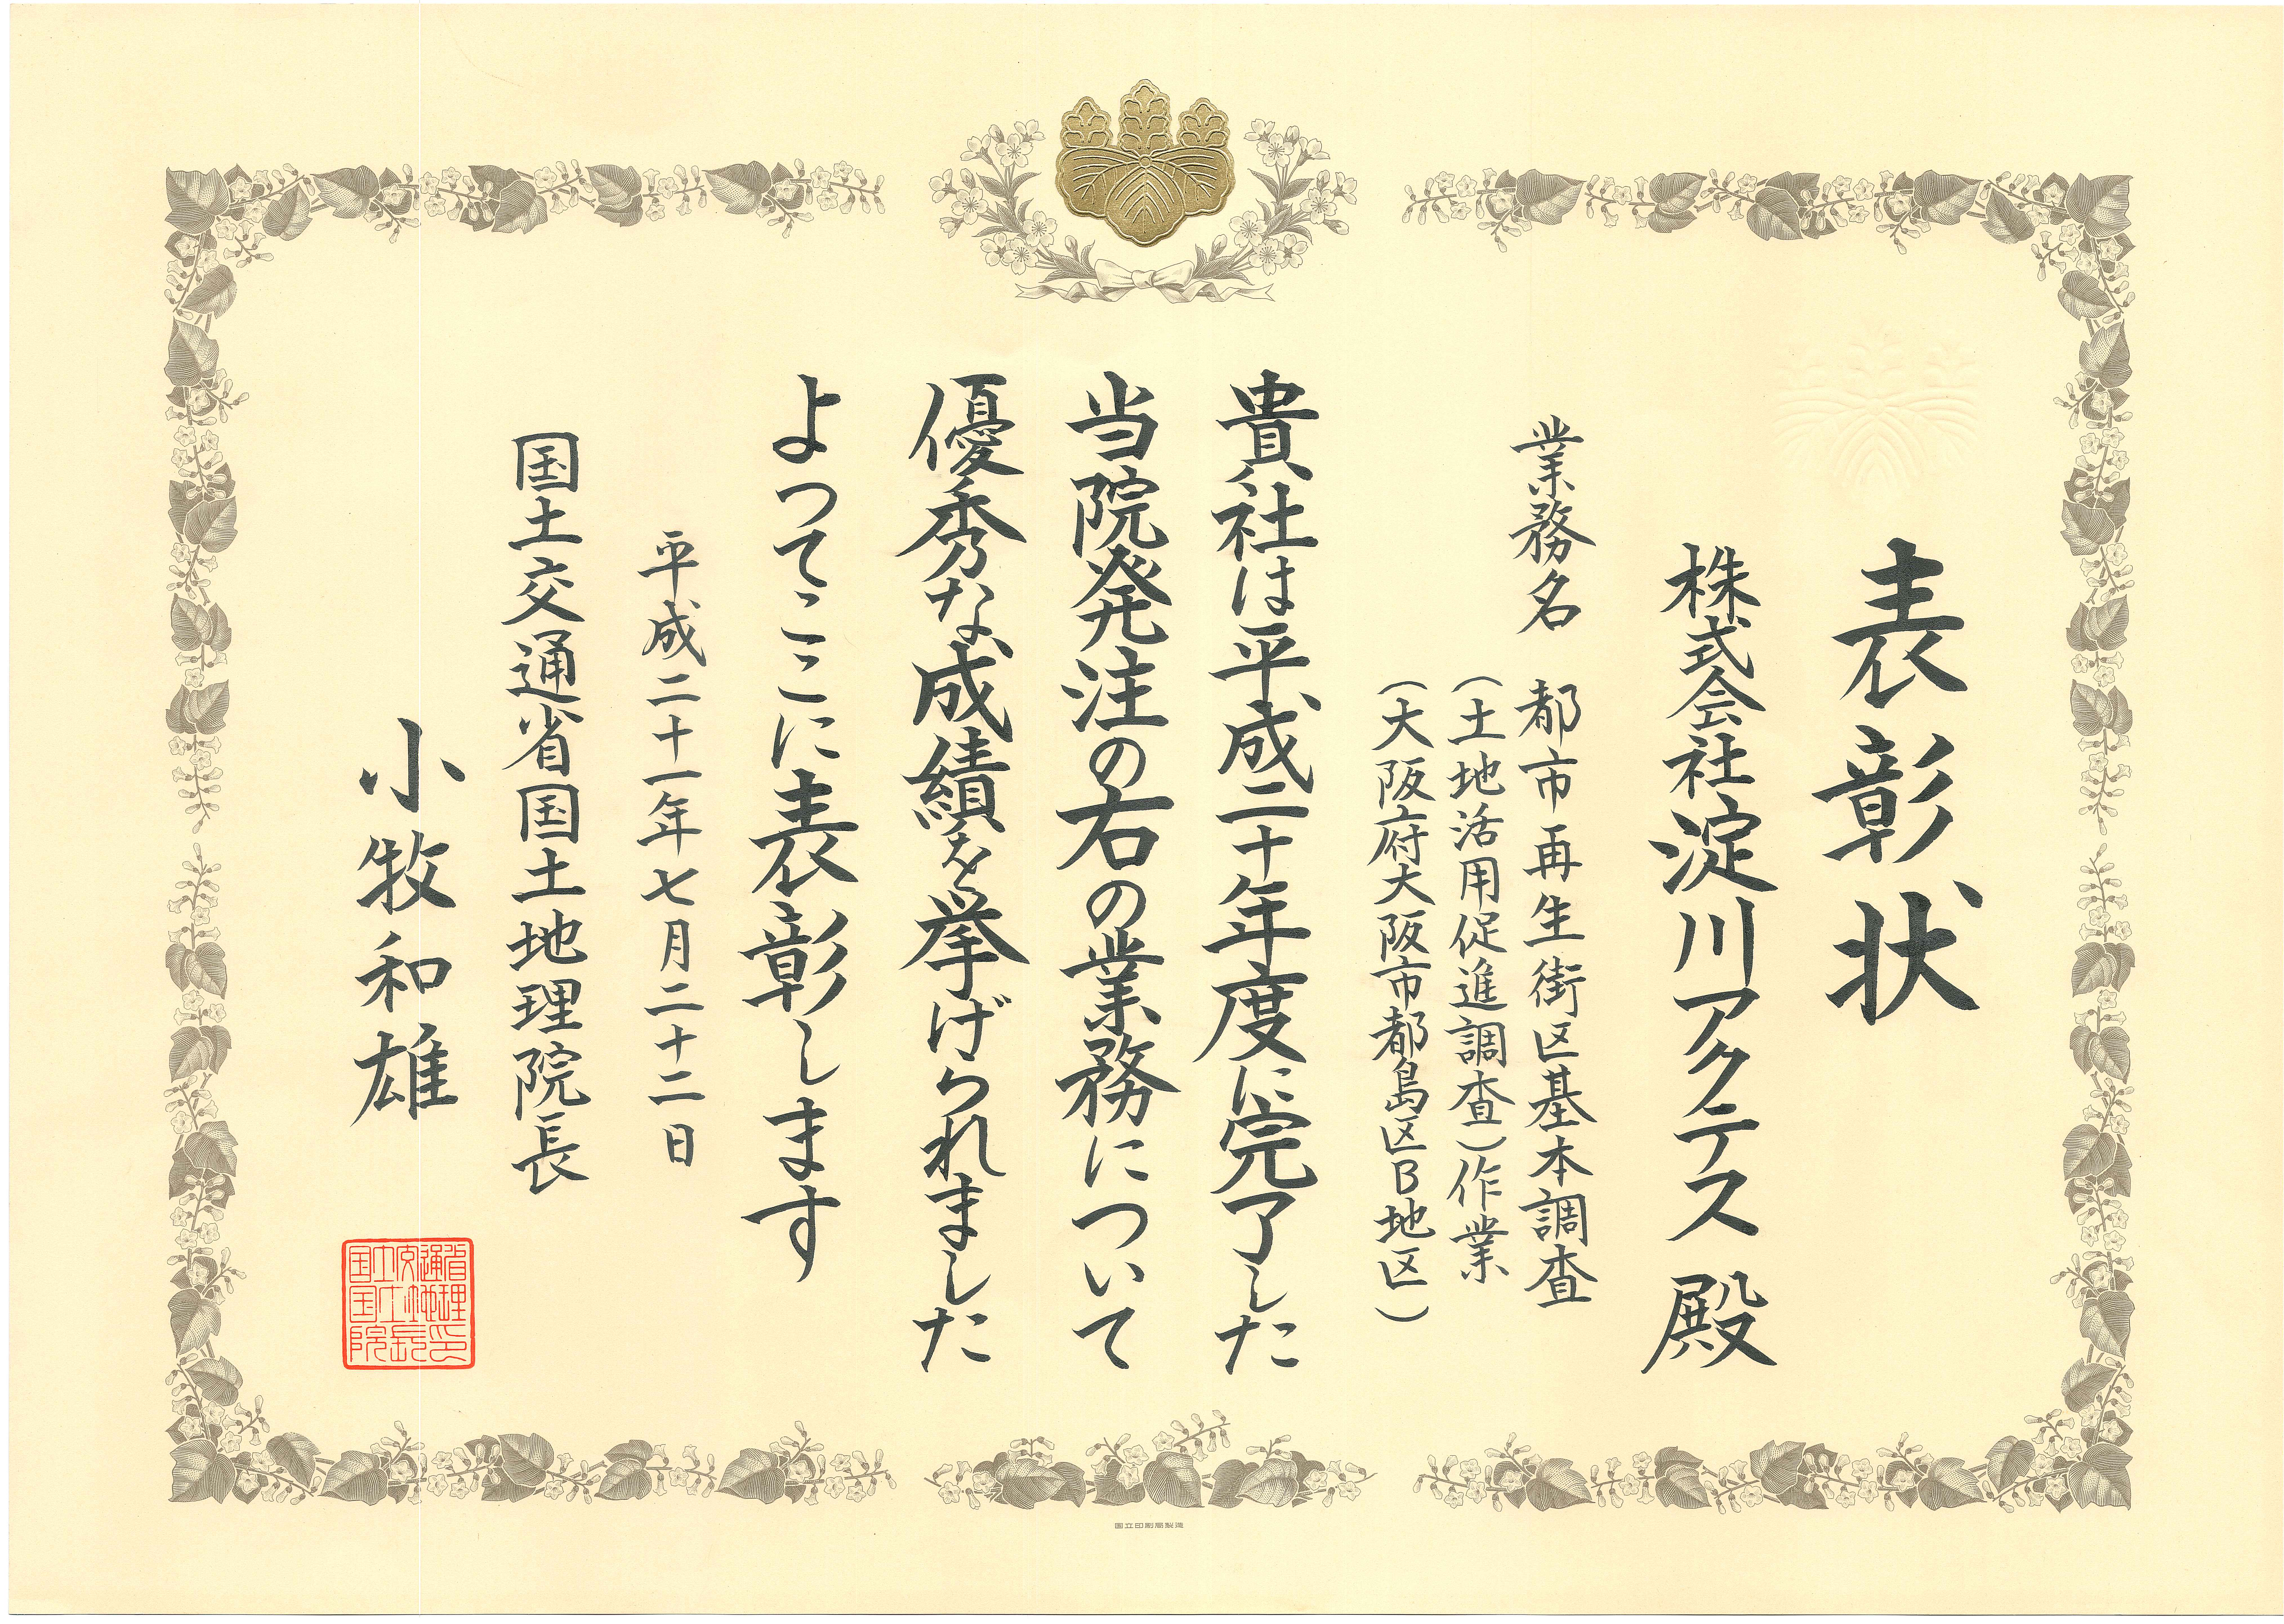 表彰状
株式会社淀川アクテス 殿
業務名 都市再生街区基本調査
(土地活用促進調査)作業
(大阪府大阪市都島区B地区)
貴社は平成二十年度に完了した
当院発注の右の業務について
優秀な成績を挙げられました
よつてここに表彰します
平成二十一年七月二十二日
国土交通省国土地理院長
小牧和雄
国土交通省
国土地理
院長印
国立印刷局製造